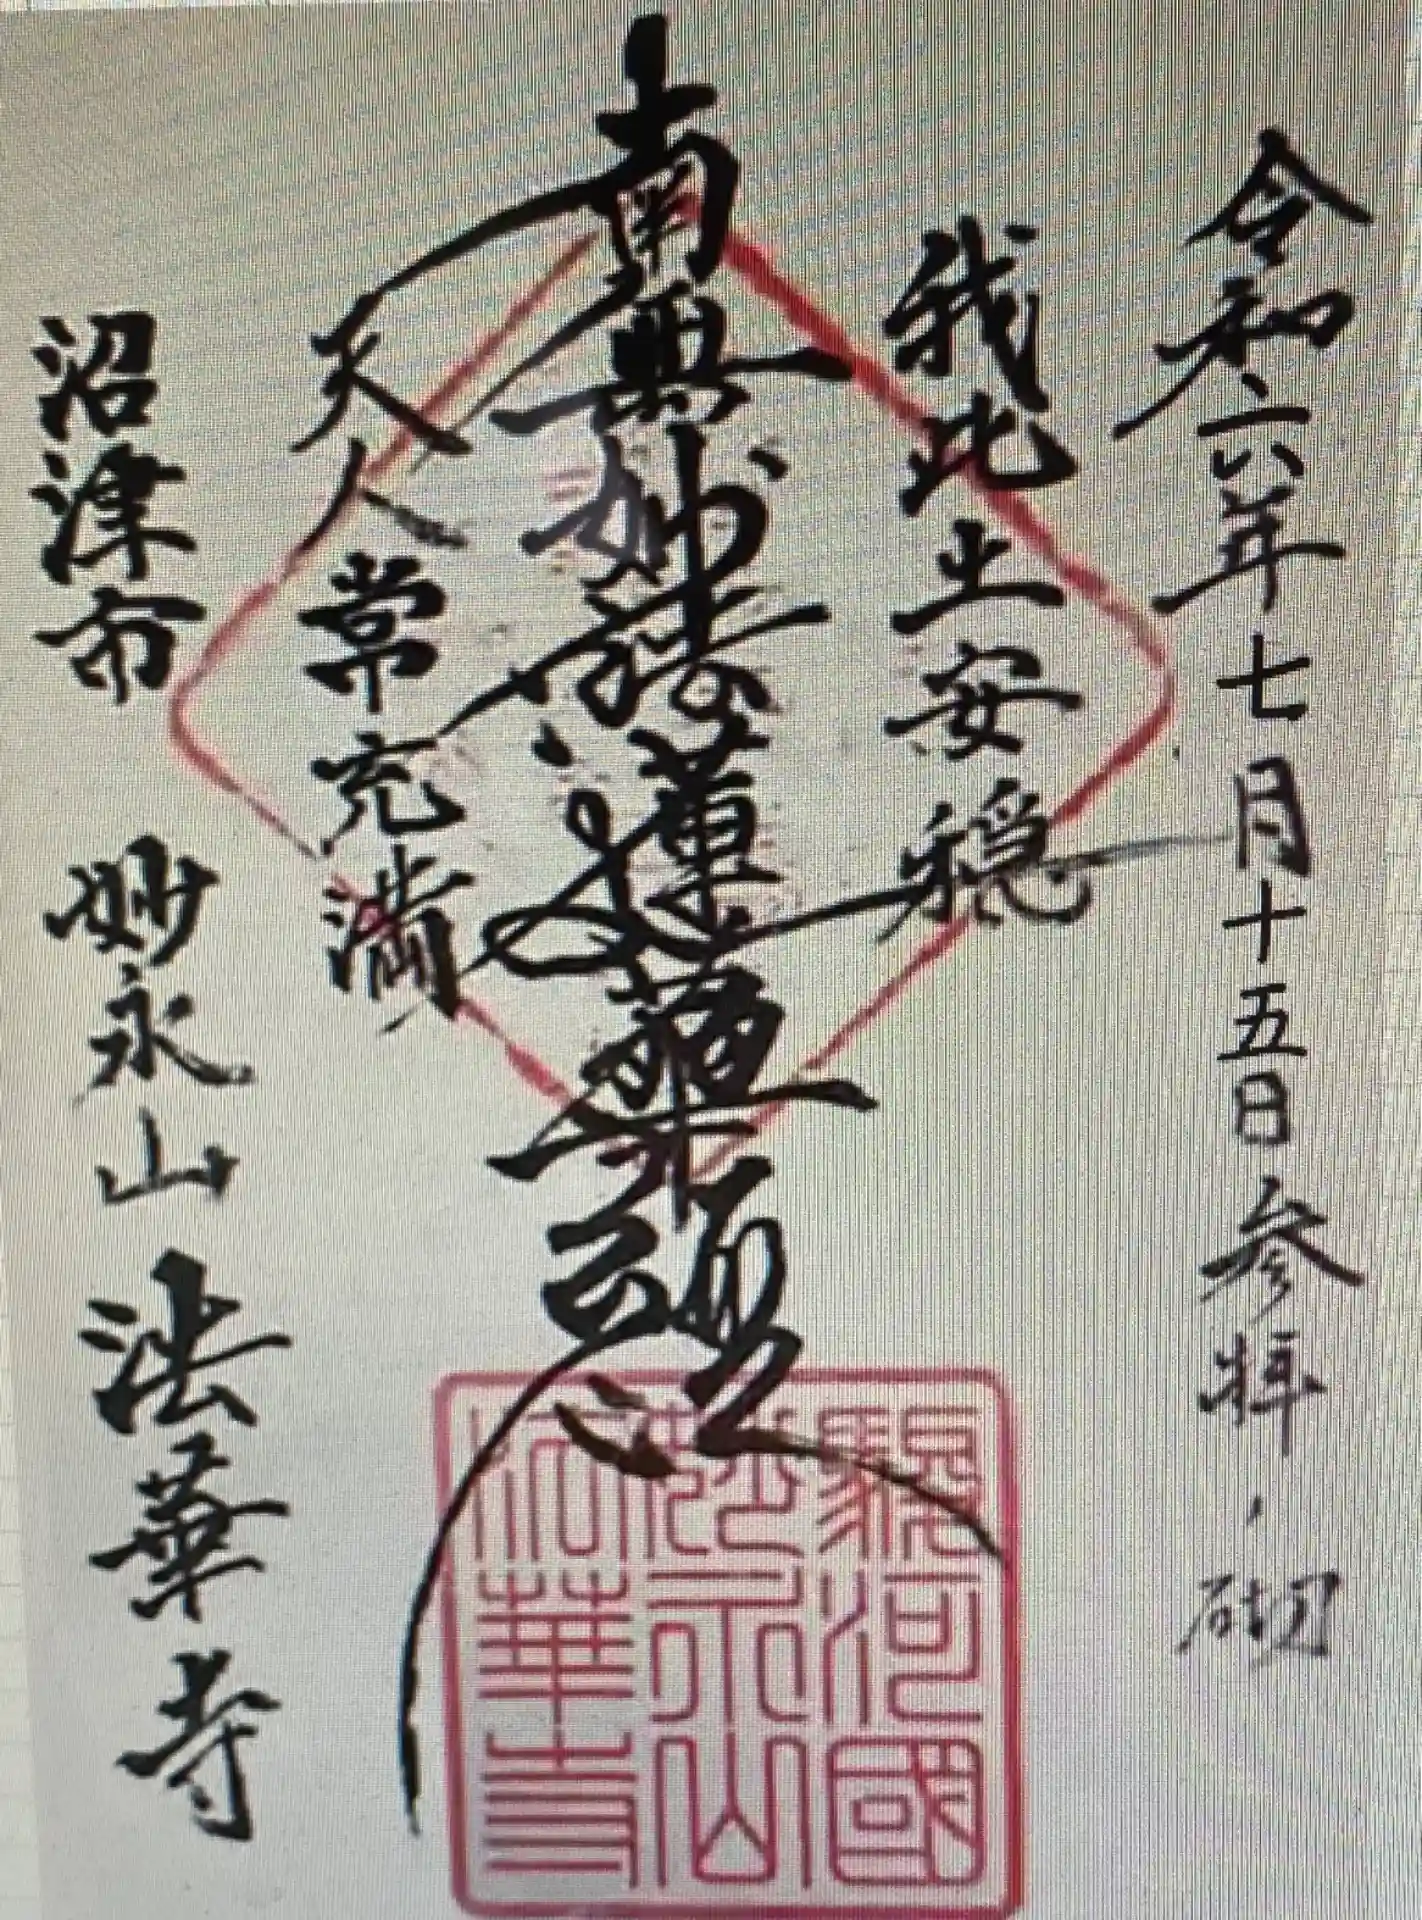 令和六年七月十五日参拝 砌
我此土安穏
南無妙法蓮華經
天人常充満
沼津市 妙永山 法華寺
駿河國
妙永山
法華寺